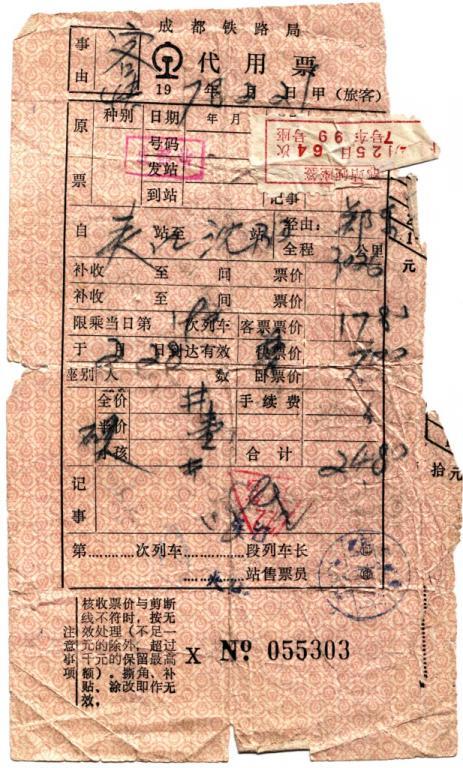 成都铁路局
事由
代用票
19 78年2月21日 甲(旅客)
原票
种别 日期 年 月
号码
发站
到站 记事
月25日 64次
7号车 99号座
自 站至沈阳站 经由: 郑
全程 3026 公里
补收 至 间 票价
补收 至 间 票价
限乘当日第 次列车 客票票价 1780
于2月28日到达有效 快票价 700
座别 人数 卧票价
全价 # 手续费
半价 壹
硬 小孩 # 合计 2480
元
拾元
记事
第………次列车………段列车长 ㊞
………站售票员 ㊞
注意事项
核收票价与剪断
线不符时,按无
效处理(不足一
元的除外,超过
千元的保留最高
额)。撕角、补
贴、涂改即作无
效。
X № 055303